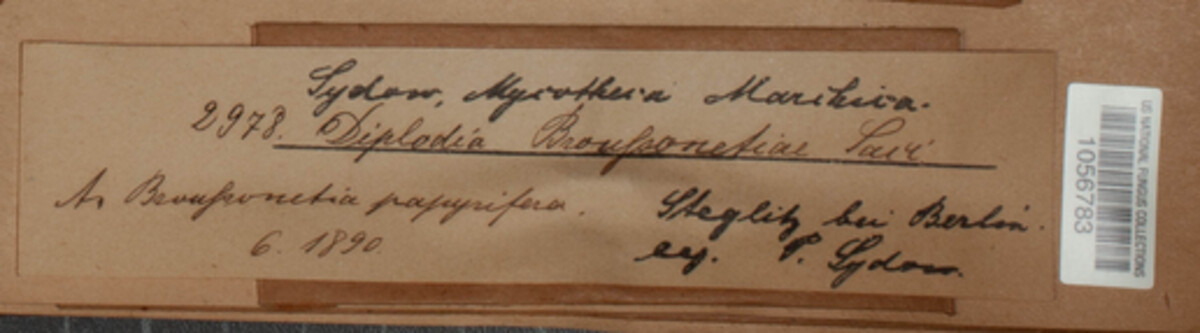 Sydow, Mycotheca Marchica.
2978. Diplodia Broußonetiae Sacc
A. Broußonetia papyrifera.
6. 1890.
Steglitz bei Berlin.
leg. P. Sydow.
US NATIONAL FUNGUS COLLECTIONS
1056783